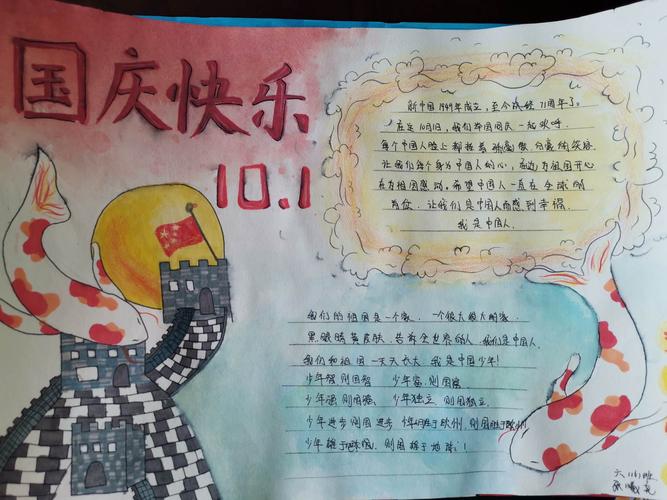 国庆快乐
10.1
新中国1949年成立，至今已经71周年了。
在这10月1日，我们举国同庆一起欢呼
每个中国人脸上都挂着
让我们每个身为中国人的心，为祖国开心
在为祖国感动，希望中国人一直在全球的
首位．让我们是中国人而感到幸福．
我是中国人．
我们的祖国是一个家．一个很大很大的家
黑眼睛黄皮肤．告诉全世界的人．我们是中国人．
我们和祖国一天天长大．我是中国少年！
少年智则国智 少年富则国富
少年强则国强 少年独立则国独立
少年进步则国进步 少年胜于欧州，则国胜于欧州
少年雄于地球，则国雄于地球！
六 班